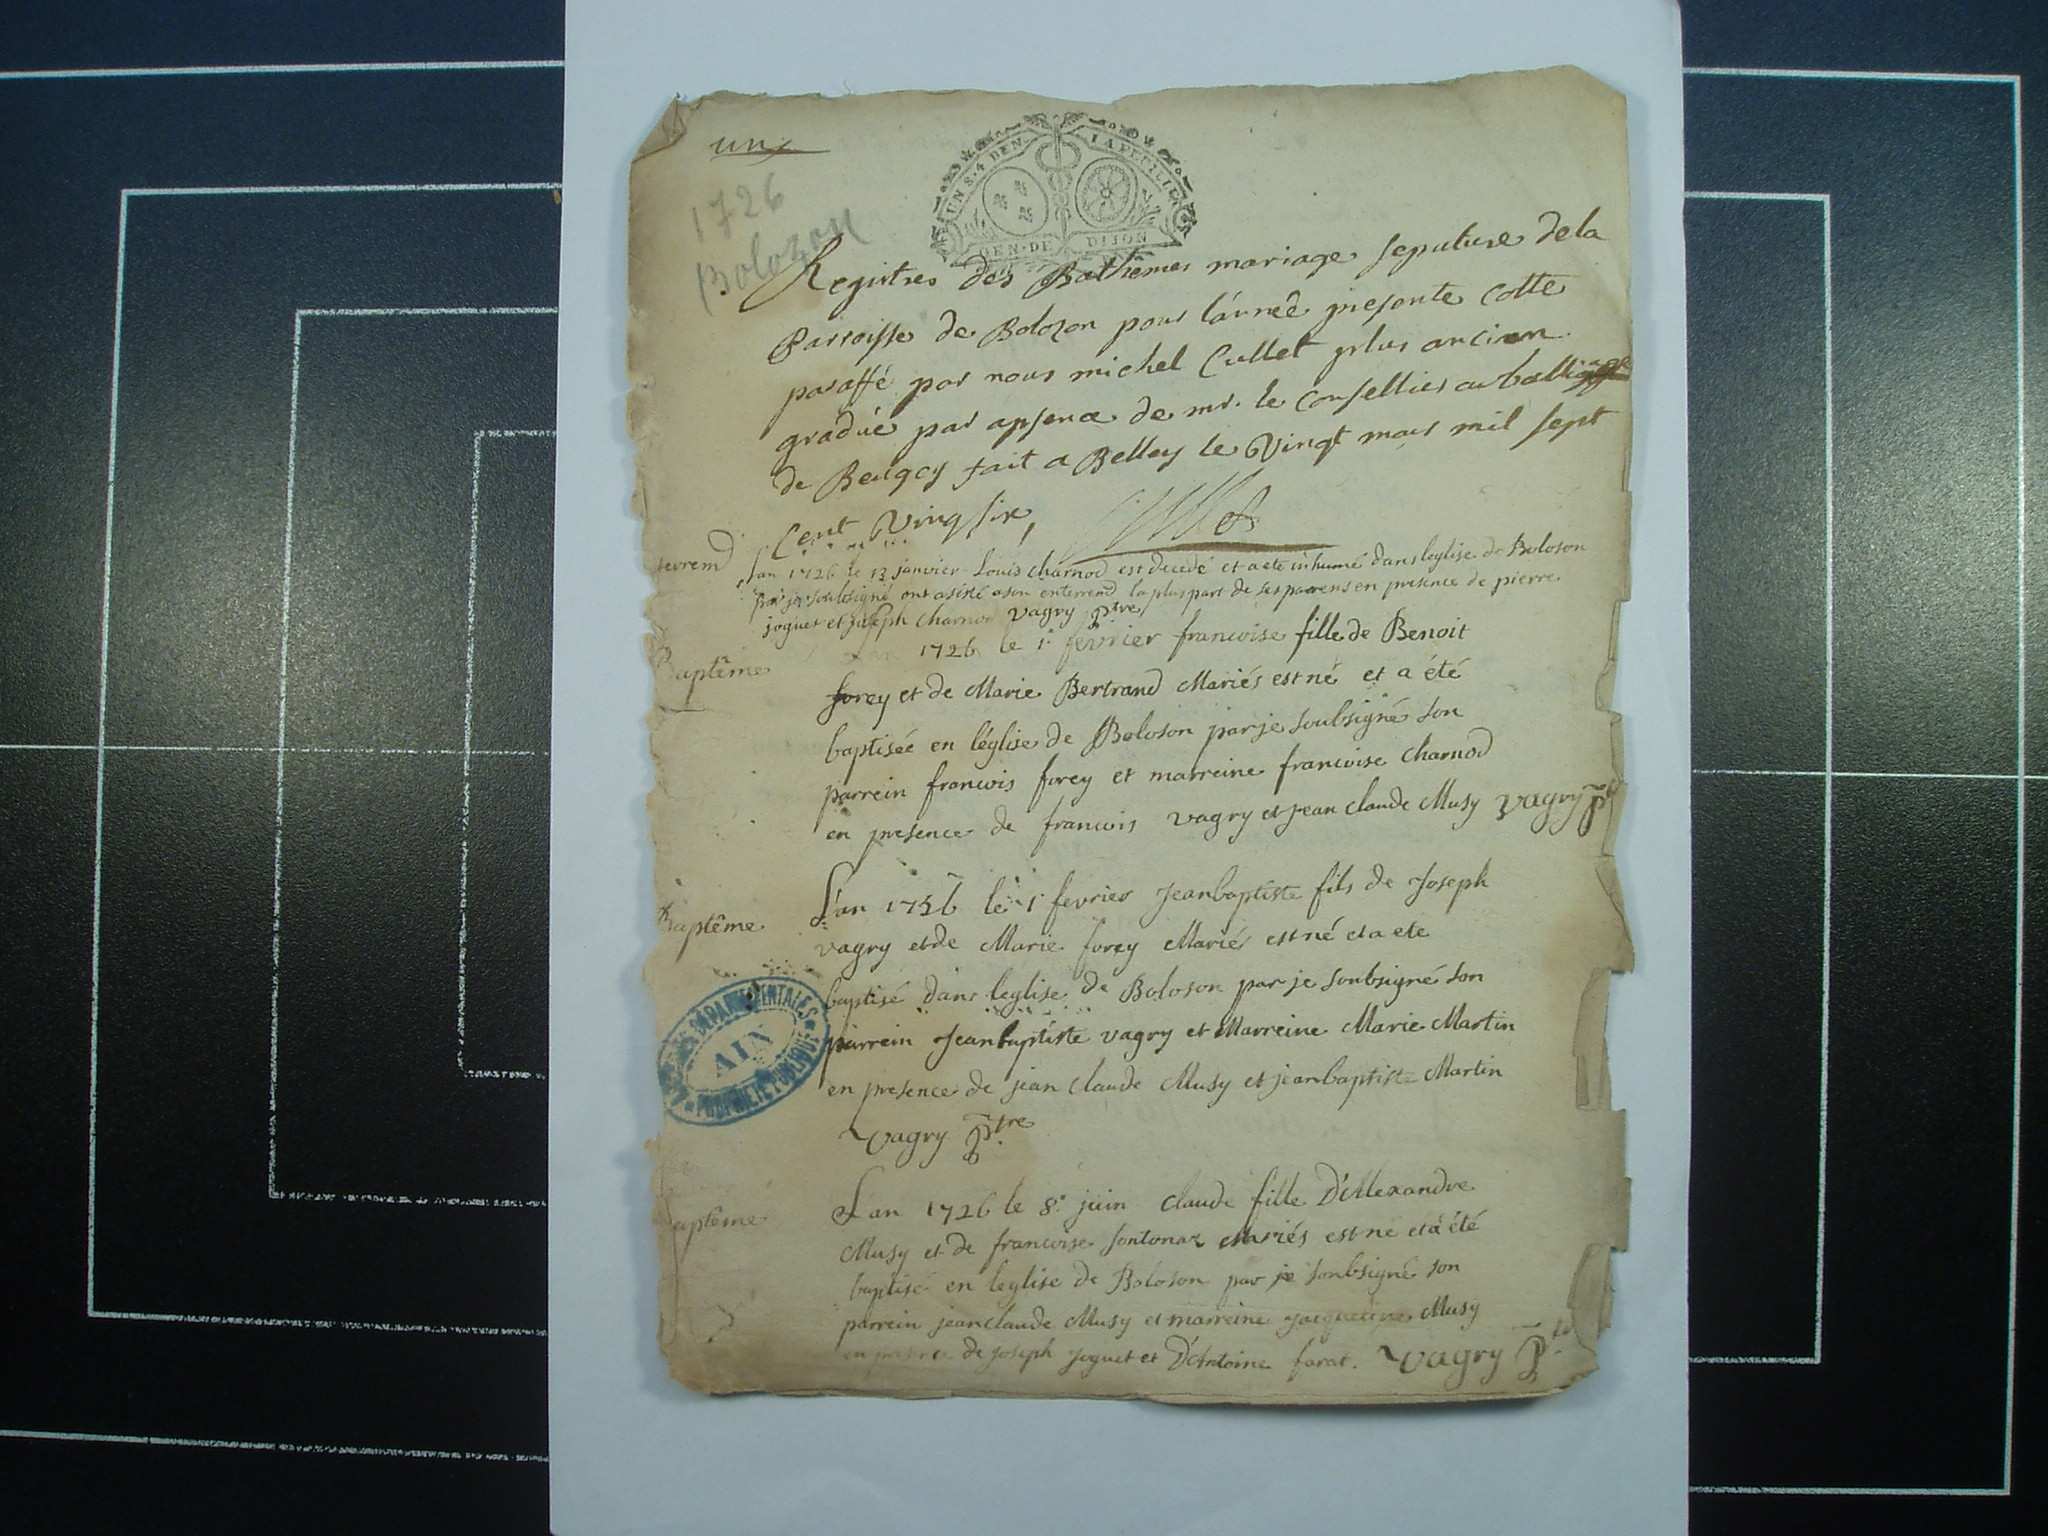 un
UN S. 4 DEN. LA PETITE
GEN. DE DIJON
1726
Bolozon
Registres des Bathemes mariage sepulure de la
Parroisse de Bolozon pour l'année presente Cotte
paraffé par nous michel Cullet plus ancien
gradué par apsence de mr. le Consellier au balliage
de Beugey fait a Belley le Vingt mars mil sept
Cent Vingt six
Cullet
L'an 1726 le 13 janvier Louis Charnod est decedé et a ete inhumé dans leglise de Boloson
par je soubsigné ont asisté a son enterrend la pluspart de ses parens en presence de pierre
joguet et joseph Charnod Vagry Ptre
Baptême
L'an 1726 le 1r fevrier francoise fille de Benoit
forey et de Marie Bertrand Mariés est né et a été
baptisée en léglise de Boloson par je soubsigné son
parrein francois forey et marreine francoise Charnod
en presence de francois vagry et jean claude Musy Vagry P
Baptême
L'an 1726 le 1r fevrier Jeanbaptiste fils de Joseph
vagry et de Marie forey Mariés est né et a ete
baptisé dans leglise de Boloson par je soubsigné son
parrein Jeanbaptiste vagry et Marreine Marie Martin
en presence de jean claude Musy et jeanbaptiste Martin
Vagry Ptre
ARCHIVES DÉPARTEMENTALES
AIN
PROPRIÉTÉ PUBLIQUE
Baptême
L'an 1726 le 8e juin Claude fille D'Alexandre
Musy et de francoise fontonax Mariés est né et a été
baptisé en leglise de Boloson par je soubsigné son
parrein jeanclaude Musy et marreine jacqueline Musy
en presence de joseph joguet et D'Antoine farat. Vagry P